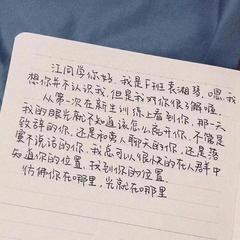 江同学你好.我是F班袁湘琴.嗯.我
想你并不认识我.但是我对你很了解喔.
从第一次在新生训练上看到你,那一天
我的眼光就不知道该怎么离开你.不管是
致辞的你.还是和旁人聊天的你.还是落
寞不说话的你.我总可以很快的在人群中
知道你的位置.找到你的位置.
仿佛你在哪里.光就在哪里